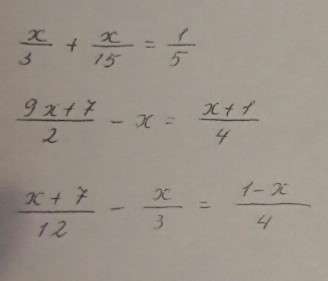 x/3 + x/15 = 1/5
(9x+7)/2 - x = (x+1)/4
(x+7)/12 - x/3 = (1-x)/4